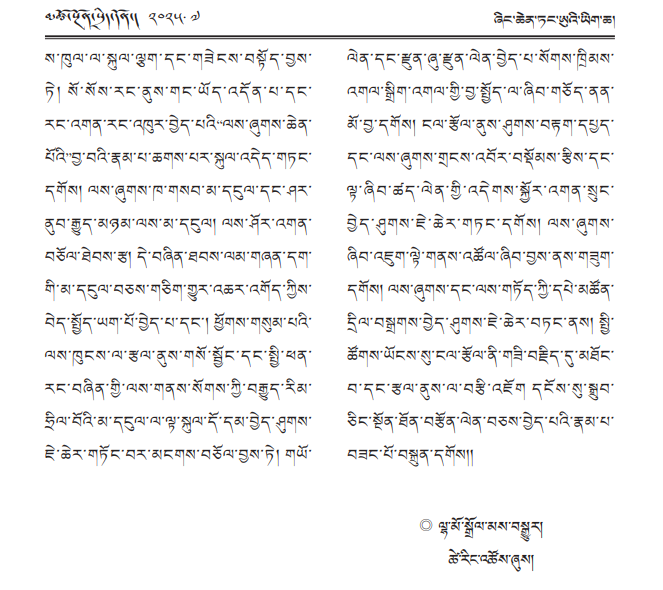 ༢༠༢༥.༧
ཞིང་ཆེན་ཏང་ཡུའི་ཡིག་ཆ།
ས་ཁུལ་ལ་སྐུལ་ལྕག་དང་གཟེངས་བསྟོད་བྱས་
ཏེ། སོ་སོས་རང་ནུས་གང་ཡོད་འདོན་པ་དང་
རང་འགན་རང་འཁུར་བྱེད་པའི“ལས་ཞུགས་ཆེན་
པོའི”བྱ་བའི་རྣམ་པ་ཆགས་པར་སྐུལ་འདེད་གཏང་
དགོས། ལས་ཞུགས་ཁ་གསབ་མ་དངུལ་དང་ཤར་
ནུབ་རྒྱུད་མཉམ་ལས་མ་དངུལ། ལས་ཤོར་འགན་
བཅོལ་ཐེབས་རྩ། དེ་བཞིན་ཐབས་ལམ་གཞན་དག་
གི་མ་དངུལ་བཅས་གཅིག་གྱུར་འཆར་འགོད་ཀྱིས་
བེད་སྤྱོད་ཡག་པོ་བྱེད་པ་དང་། ཕྱོགས་གསུམ་པའི་
ལས་ཁུངས་ལ་རྩལ་ནུས་གསོ་སྦྱོང་དང་སྤྱི་ཕན་
རང་བཞིན་གྱི་ལས་གནས་སོགས་ཀྱི་བརྒྱུད་རིམ་
ཧྲིལ་བོའི་མ་དངུལ་ལ་ལྟ་སྐུལ་དོ་དམ་བྱེད་ཤུགས་
ཇེ་ཆེར་གཏོང་བར་མངགས་བཅོལ་བྱས་ཏེ། གཡོ་
ལེན་དང་རྫུན་ཞུ་རྫུན་ལེན་བྱེད་པ་སོགས་ཁྲིམས་
འགལ་སྒྲིག་འགལ་གྱི་བྱ་སྤྱོད་ལ་ཞིབ་གཅོད་ནན་
མོ་བྱ་དགོས། ངལ་རྩོལ་ནུས་ཤུགས་བརྟག་དཔྱད་
དང་ལས་ཞུགས་གྲངས་འབོར་བསྡོམས་རྩིས་དང་
ལྟ་ཞིབ་ཚད་ལེན་གྱི་འདེགས་སྐྱོར་འགན་སྲུང་
བྱེད་ཤུགས་ཇེ་ཆེར་གཏང་དགོས། ལས་ཞུགས་
ཞིབ་འཇུག་ལྟེ་གནས་འཚོལ་ཞིབ་བྱས་ནས་གཟུག་
དགོས། ལས་ཞུགས་དང་ལས་གཏོད་ཀྱི་དཔེ་མཚོན་
དྲིལ་བསྒྲགས་བྱེད་ཤུགས་ཇེ་ཆེར་བཏང་ནས། སྤྱི་
ཚོགས་ཡོངས་སུ་ངལ་རྩོལ་ནི་གཟི་བརྗིད་དུ་མཐོང་
བ་དང་རྩལ་ནུས་ལ་བརྩི་འཇོག དངོས་སུ་སྒྲུབ་
ཅིང་སྔོན་ཐོན་བརྩོན་ལེན་བཅས་བྱེད་པའི་རྣམ་པ་
བཟང་པོ་བསྐྲུན་དགོས།།
◎ ལྷ་མོ་སྒྲོལ་མས་བསྒྱུར།
ཚེ་རིང་འཚོས་ཞུས།